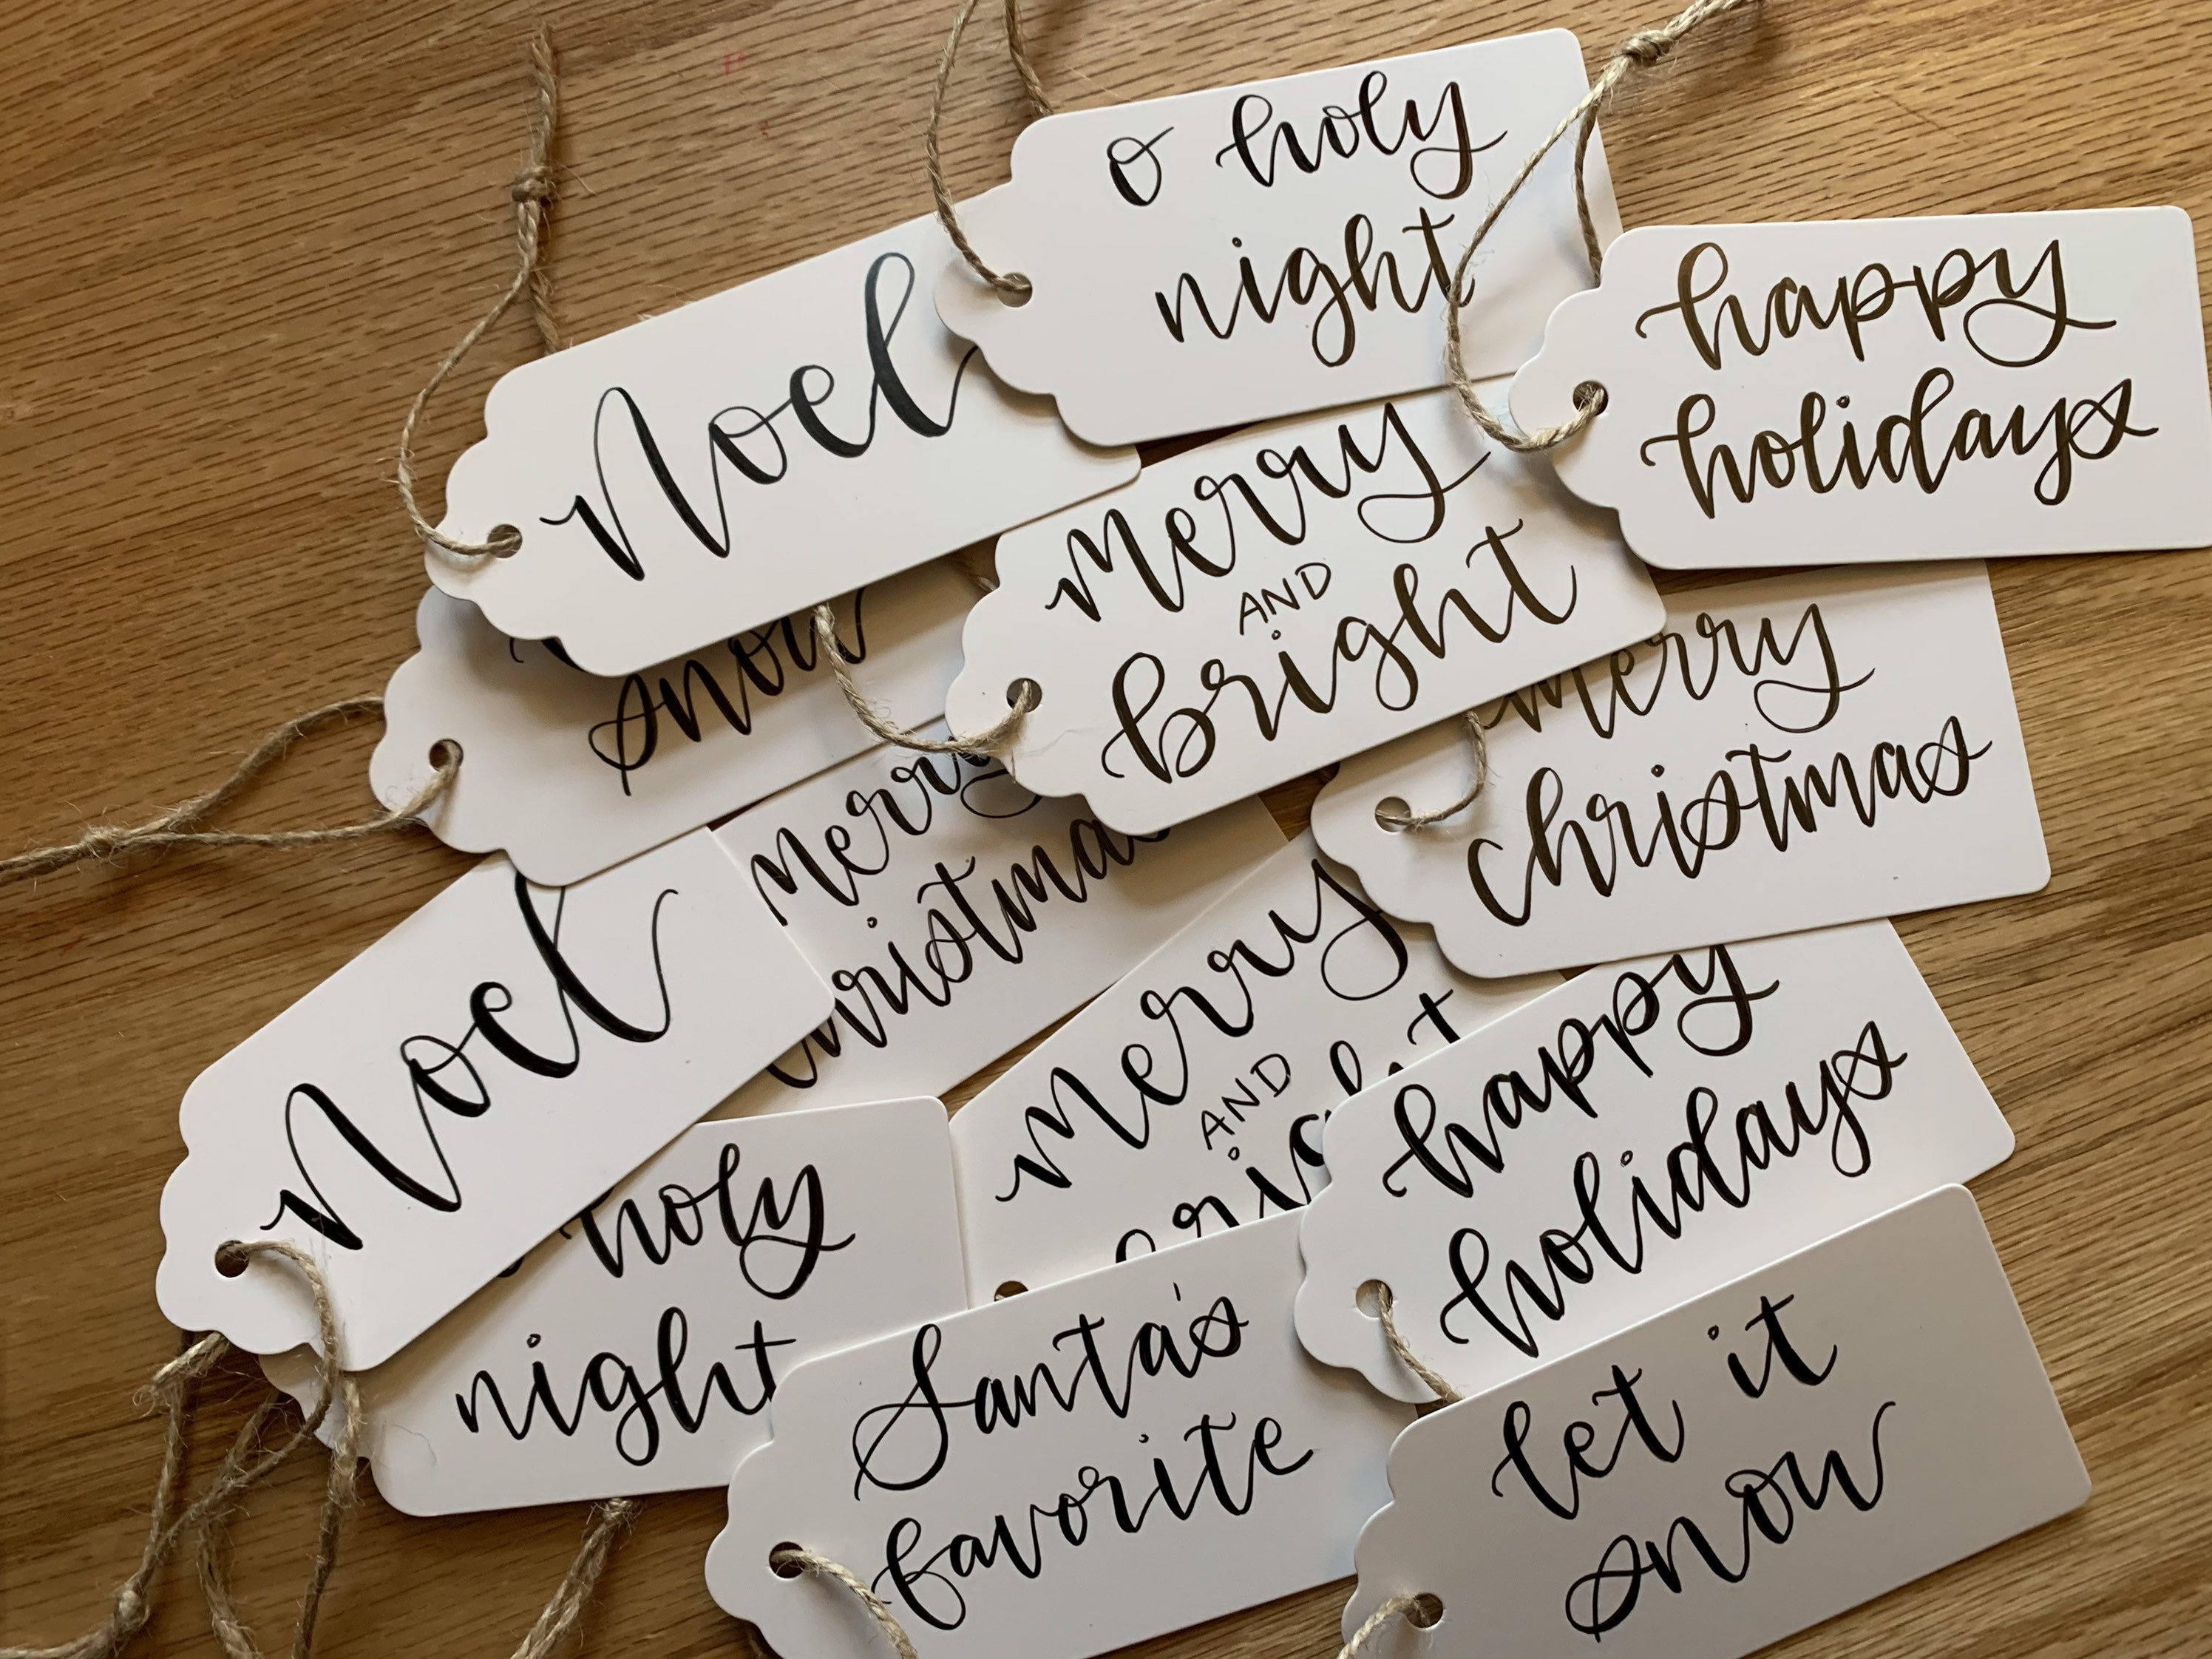 o holy
night
happy
holidays
Noel
merry
AND
bright
snow
merry
christmas
merry
christmas
Noel
merry
AND
bright
happy
holidays
holy
night
Santa's
favorite
let it
snow